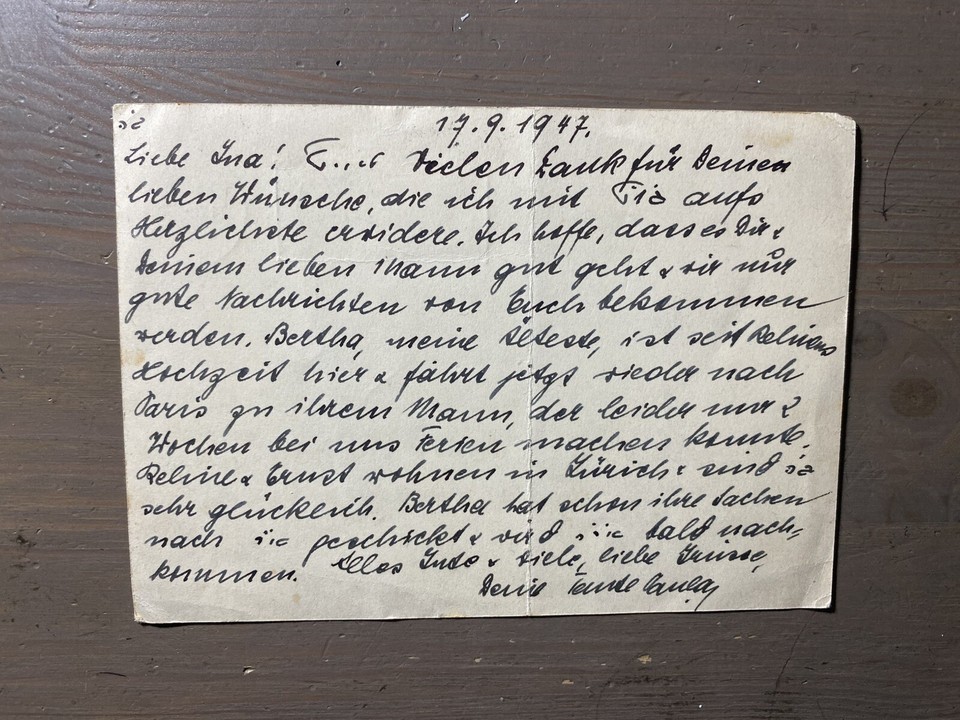 17.9.1947.
Liebe Ina! Vielen Dank für Deinen
lieben Wünsche, die ich mit aufs
Herzlichste erwidere. Ich hoffe, dass es Dir &
Deinem lieben Mann gut geht & wir nur
gute Nachrichten von Euch bekommen
werden. Bertha, meine Älteste, ist seit Relines
Hochzeit hier & fährt jetzt wieder nach
Paris zu ihrem Mann, der leider nur 2
Wochen bei uns Ferien machen konnte.
Reline & Ernst wohnen in Zürich & sind
sehr glücklich. Bertha hat schon ihre Sachen
nach geschickt & wird bald nach-
kommen. Alles Gute & viele, liebe Grüsse,
Deine Tante Paula